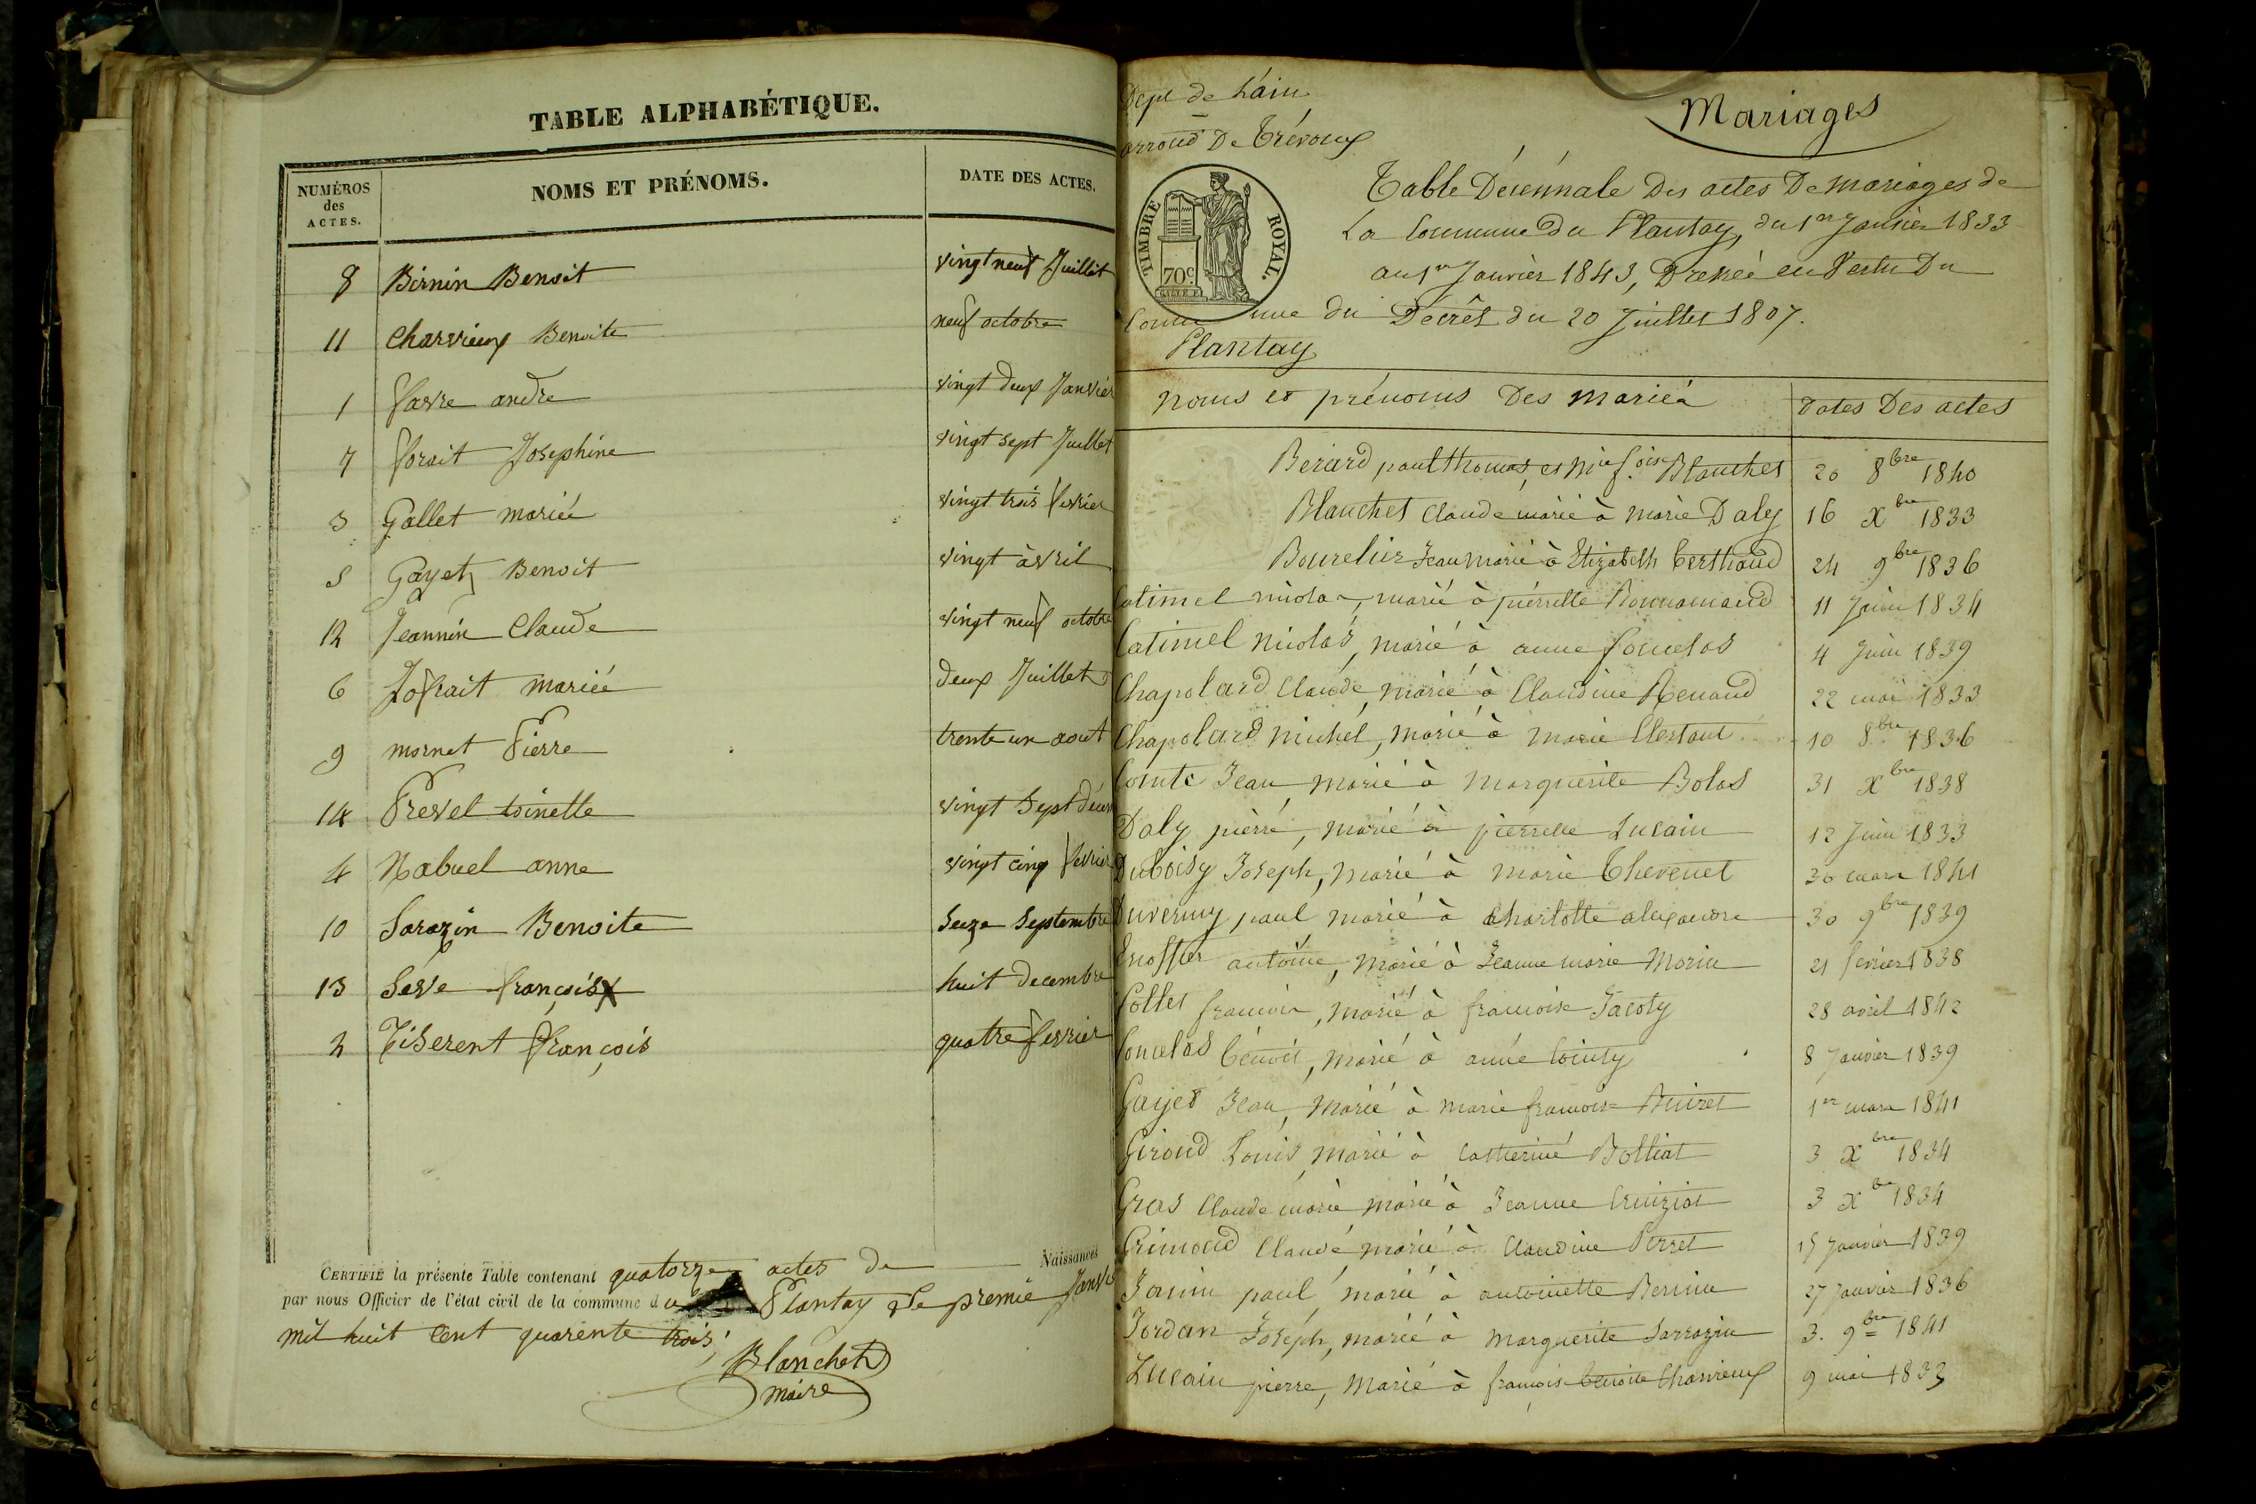 TABLE ALPHABÉTIQUE.
NUMÉROS des ACTES. NOMS ET PRÉNOMS. DATE DES ACTES.
8 Birnin Benoit vingt neuf Juillet
11 Charvieux Benoite neuf octobre
1 favre andré vingt deux Janvier
7 forait Josephine vingt sept Juillet
3 Gallet mariée vingt trois fevrier
5 Gayet Benoit vingt àvril
12 Jeannin Claude vingt neuf octobre
6 Jofrait mariée deux Juillet
9 mornet Pierre trente un aout
14 Prevel toinette vingt Sept décem
4 Rabuel anne vingt cinq fevrier
10 Sarazin Benoite Seize Septembre
13 Seve françois huit decembre
2 Tiserent françois quatre fevrier
CERTIFIÉ la présente Table contenant quatorze actes de Naissances
par nous Officier de l'état civil de la commune du Plantay Le premie Janvie
mil huit Cent quarente trois;
Blanchet
maire
Dept de L'ain
arrond De Trévoux
Mariages
TIMBRE ROYAL.
70c.
Table Décénnale Des actes De mariages de
La Commune Du Plantay, du 1er Janvier 1833
au 1er Janvier 1843, Dressée en Vertu Du
Commune du Décrêt du 20 Juillet 1807.
Plantay
Noms et prénoms Des mariés Dates Des actes
Berard paul thomas, et Mie foise Blanchet 20 8bre 1840
Blanchet Claude marié à marie Daly 16 Xbre 1833
Bourelier Jean marié à Elizabeth Berthaud 24 9bre 1836
Catimel nicolas, marié à pierrette Bonnamand 11 Juin 1834
Catimel Nicolas, marié à anne foncelas 4 Juin 1839
Chapolard Claude, marié à Claudine Renaud 22 mai 1833
Chapolard michel, marié à marie Clertant 10 8bre 1836
Comte Jean marié à marguerite Bolas 31 Xbre 1838
Daly pierre, marié à pierrette Lucain 12 Juin 1833
Duboisy Joseph, marié à marie Thevenet 30 mars 1841
Duverny paul marié à Charlotte alexandre 30 9bre 1839
antoine, marié à Jeanne marie Morin 21 fevrier 1838
Follet francois, marié à francoise Jacoty 28 avril 1842
foncelas Benoit, marié à anne Cointy 8 Janvier 1839
Gayet Jean, Marié à marie francoise Buiret 1er mars 1841
Giroud Louis, marié à Catherine Bolliat 3 Xbre 1834
Gras Claude marie marié à Jeanne Cruiziat 3 Xbre 1834
Grimoud Claude, marié à Claudine Perret 15 Janvier 1839
Janin paul, marié à antoinette Bernin 27 Janvier 1836
Jordan Joseph, marié à marguerite Sarrazin 3. 9bre 1841
Lucain pierre, Marié à françoise benoite Charvieux 9 mai 1833